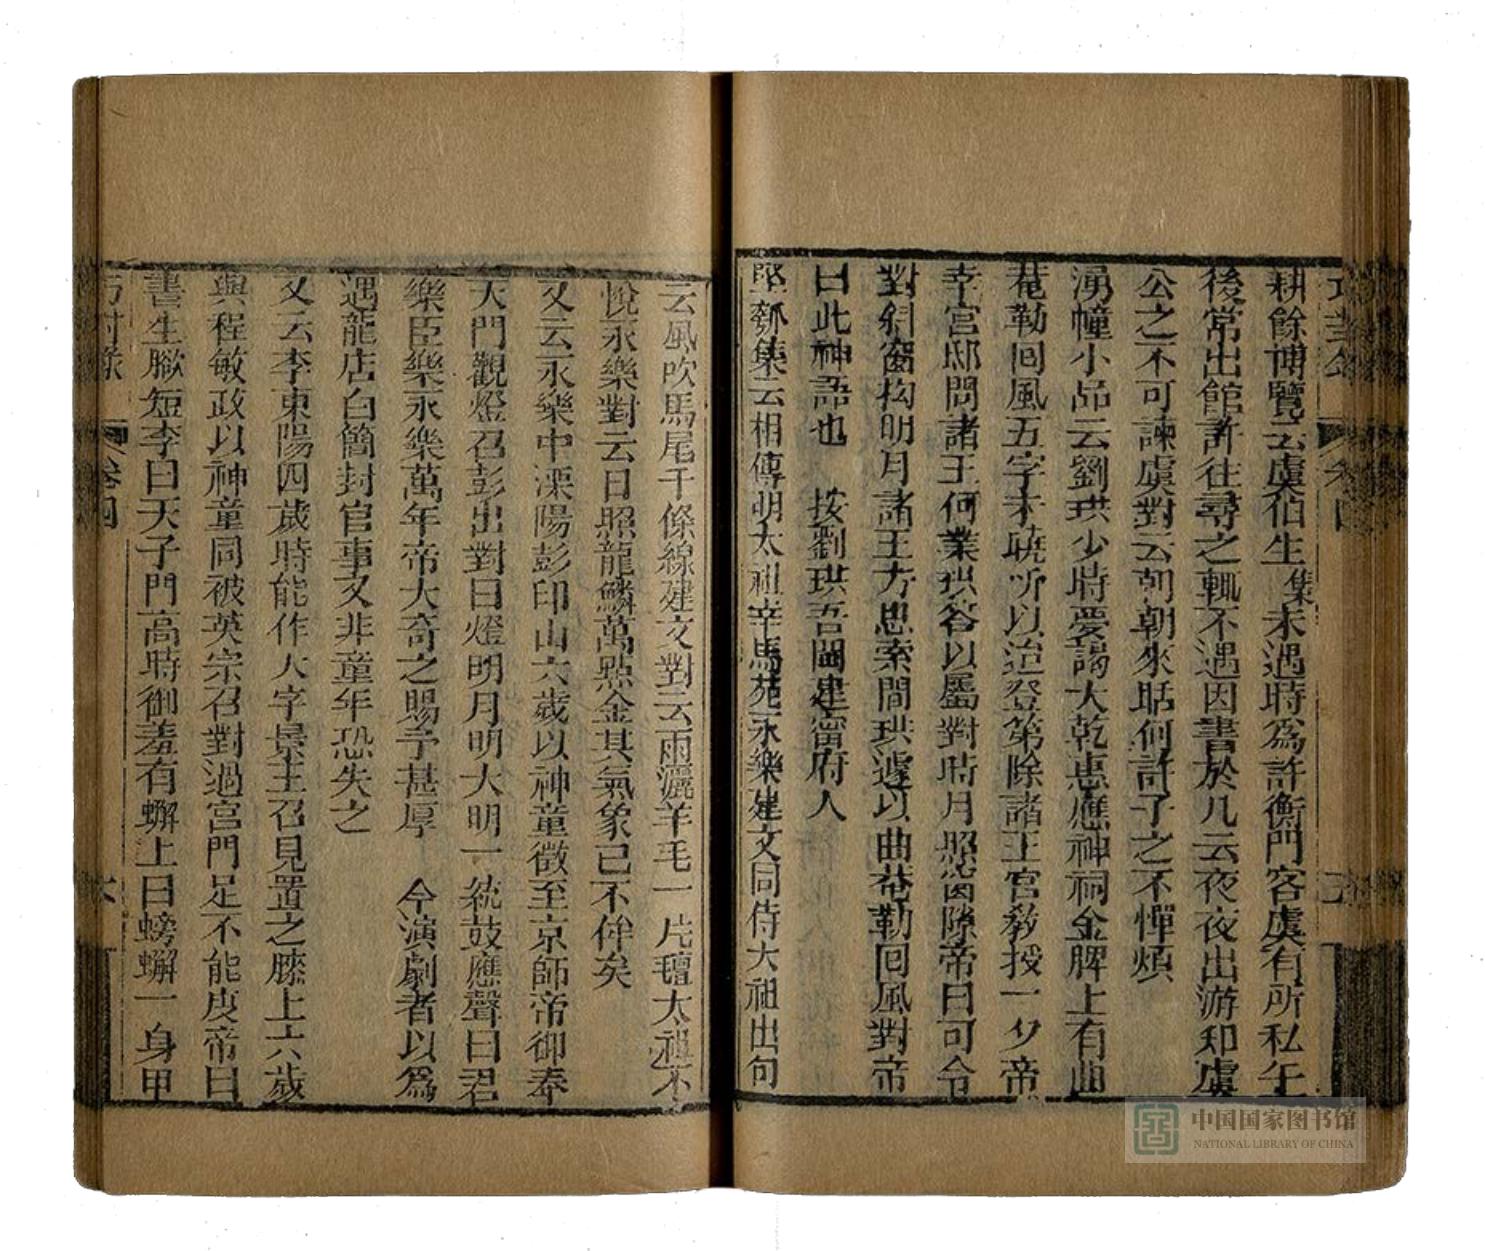 耕餘博覽云虞伯生集未遇時爲許衡門客虞有所私午
後常出館許往尋之輒不遇因書於几云夜夜出游知虞
公之不可諫虞對云朝朝來聒何許子之不憚煩
湧幢小品云劉珙少時夢謁大乾惠應神祠金牌上有曲
巷勒回風五字未曉所以迨登第除諸王宮教授一夕帝
幸宮邸問諸王何業珙答以屬對時月照窗隙帝曰可令
對斜窗抅明月諸王方思索間珙遽以曲巷勒回風對帝
曰此神語也　按劉珙吾閩建甯府人
堅瓠集云相傳明太祖幸馬苑永樂建文同侍太祖出句
云風吹馬尾千條線建文對云雨灑羊毛一片氈太祖不
悅永樂對云日照龍鱗萬點金其氣象已不侔矣
又云永樂中溧陽彭印山六歲以神童徵至京師帝御奉
天門觀燈召彭出對曰燈明月明大明一統鼓應聲曰君
樂臣樂永樂萬年帝大奇之賜予甚厚　今演劇者以爲
遇龍店白簡封官事又非童年恐失之
又云李東陽四歲時能作大字景主召見置之膝上六歲
與程敏政以神童同被英宗召對過宮門足不能度帝曰
書生腳短李曰天子門高時御羞有蠏上曰螃蠏一身甲
巧對錄
卷四
六
中国国家图书馆
NATIONAL LIBRARY OF CHINA